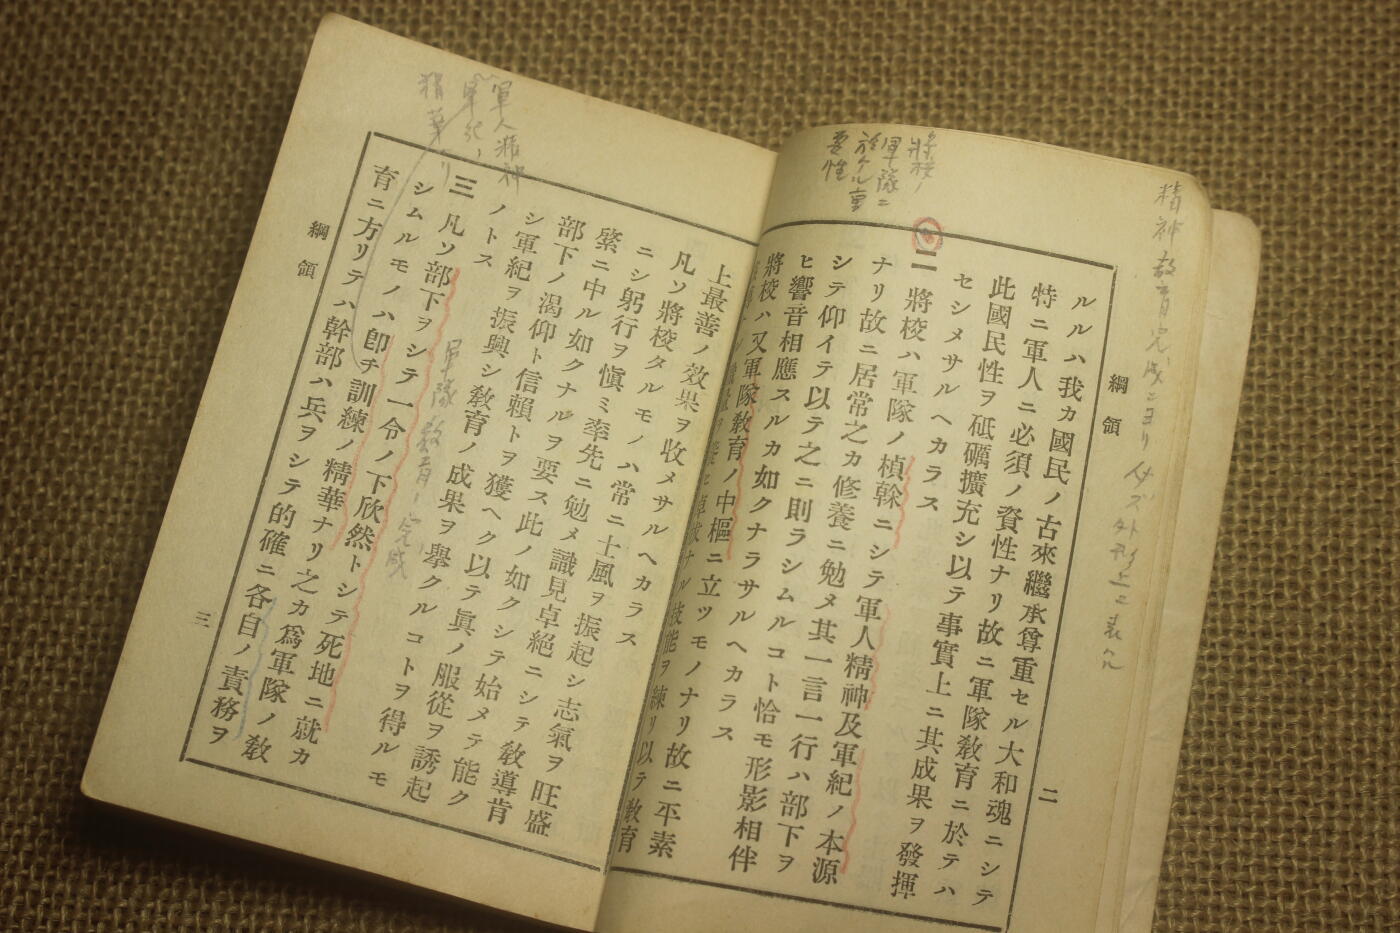 精神教育完成ニヨリ
必ズ外形上ニ表ル
綱領
二
ルルハ我カ國民ノ古來繼承尊重セル大和魂ニシテ
特ニ軍人ニ必須ノ資性ナリ故ニ軍隊敎育ニ於テハ
此國民性ヲ砥礪擴充シ以テ事實上ニ其成果ヲ發揮
セシメサルヘカラス
將校ノ
軍隊ニ
於ケル重
要性
二 將校ハ軍隊ノ楨榦ニシテ軍人精神及軍紀ノ本源
ナリ故ニ居常之カ修養ニ勉メ其一言一行ハ部下ヲ
シテ仰イテ以テ之ニ則ラシムルコト恰モ形影相伴
ヒ響音相應スルカ如クナラサルヘカラス
將校ハ又軍隊敎育ノ中樞ニ立ツモノナリ故ニ平素
ナル技能ヲ練リ以テ敎育
上最善ノ效果ヲ收メサルヘカラス
凡ソ將校タルモノハ常ニ士風ヲ振起シ志氣ヲ旺盛
ニシ躬行ヲ愼ミ率先ニ勉メ識見卓絕ニシテ敎導肯
綮ニ中ル如クナルヲ要ス此ノ如クシテ始メテ能ク
部下ノ渴仰ト信賴トヲ獲ヘク以テ眞ノ服從ヲ誘起
シ軍紀ヲ振興シ敎育ノ成果ヲ擧クルコトヲ得ルモ
ノトス
軍人精神
軍紀ノ
精華ナリ
三 凡ソ部下ヲシテ一令ノ下欣然トシテ死地ニ就カ
軍隊教育ノ完成
シムルモノハ卽チ訓練ノ精華ナリ之カ爲軍隊ノ敎
育ニ方リテハ幹部ハ兵ヲシテ的確ニ各自ノ責務ヲ
綱領
三